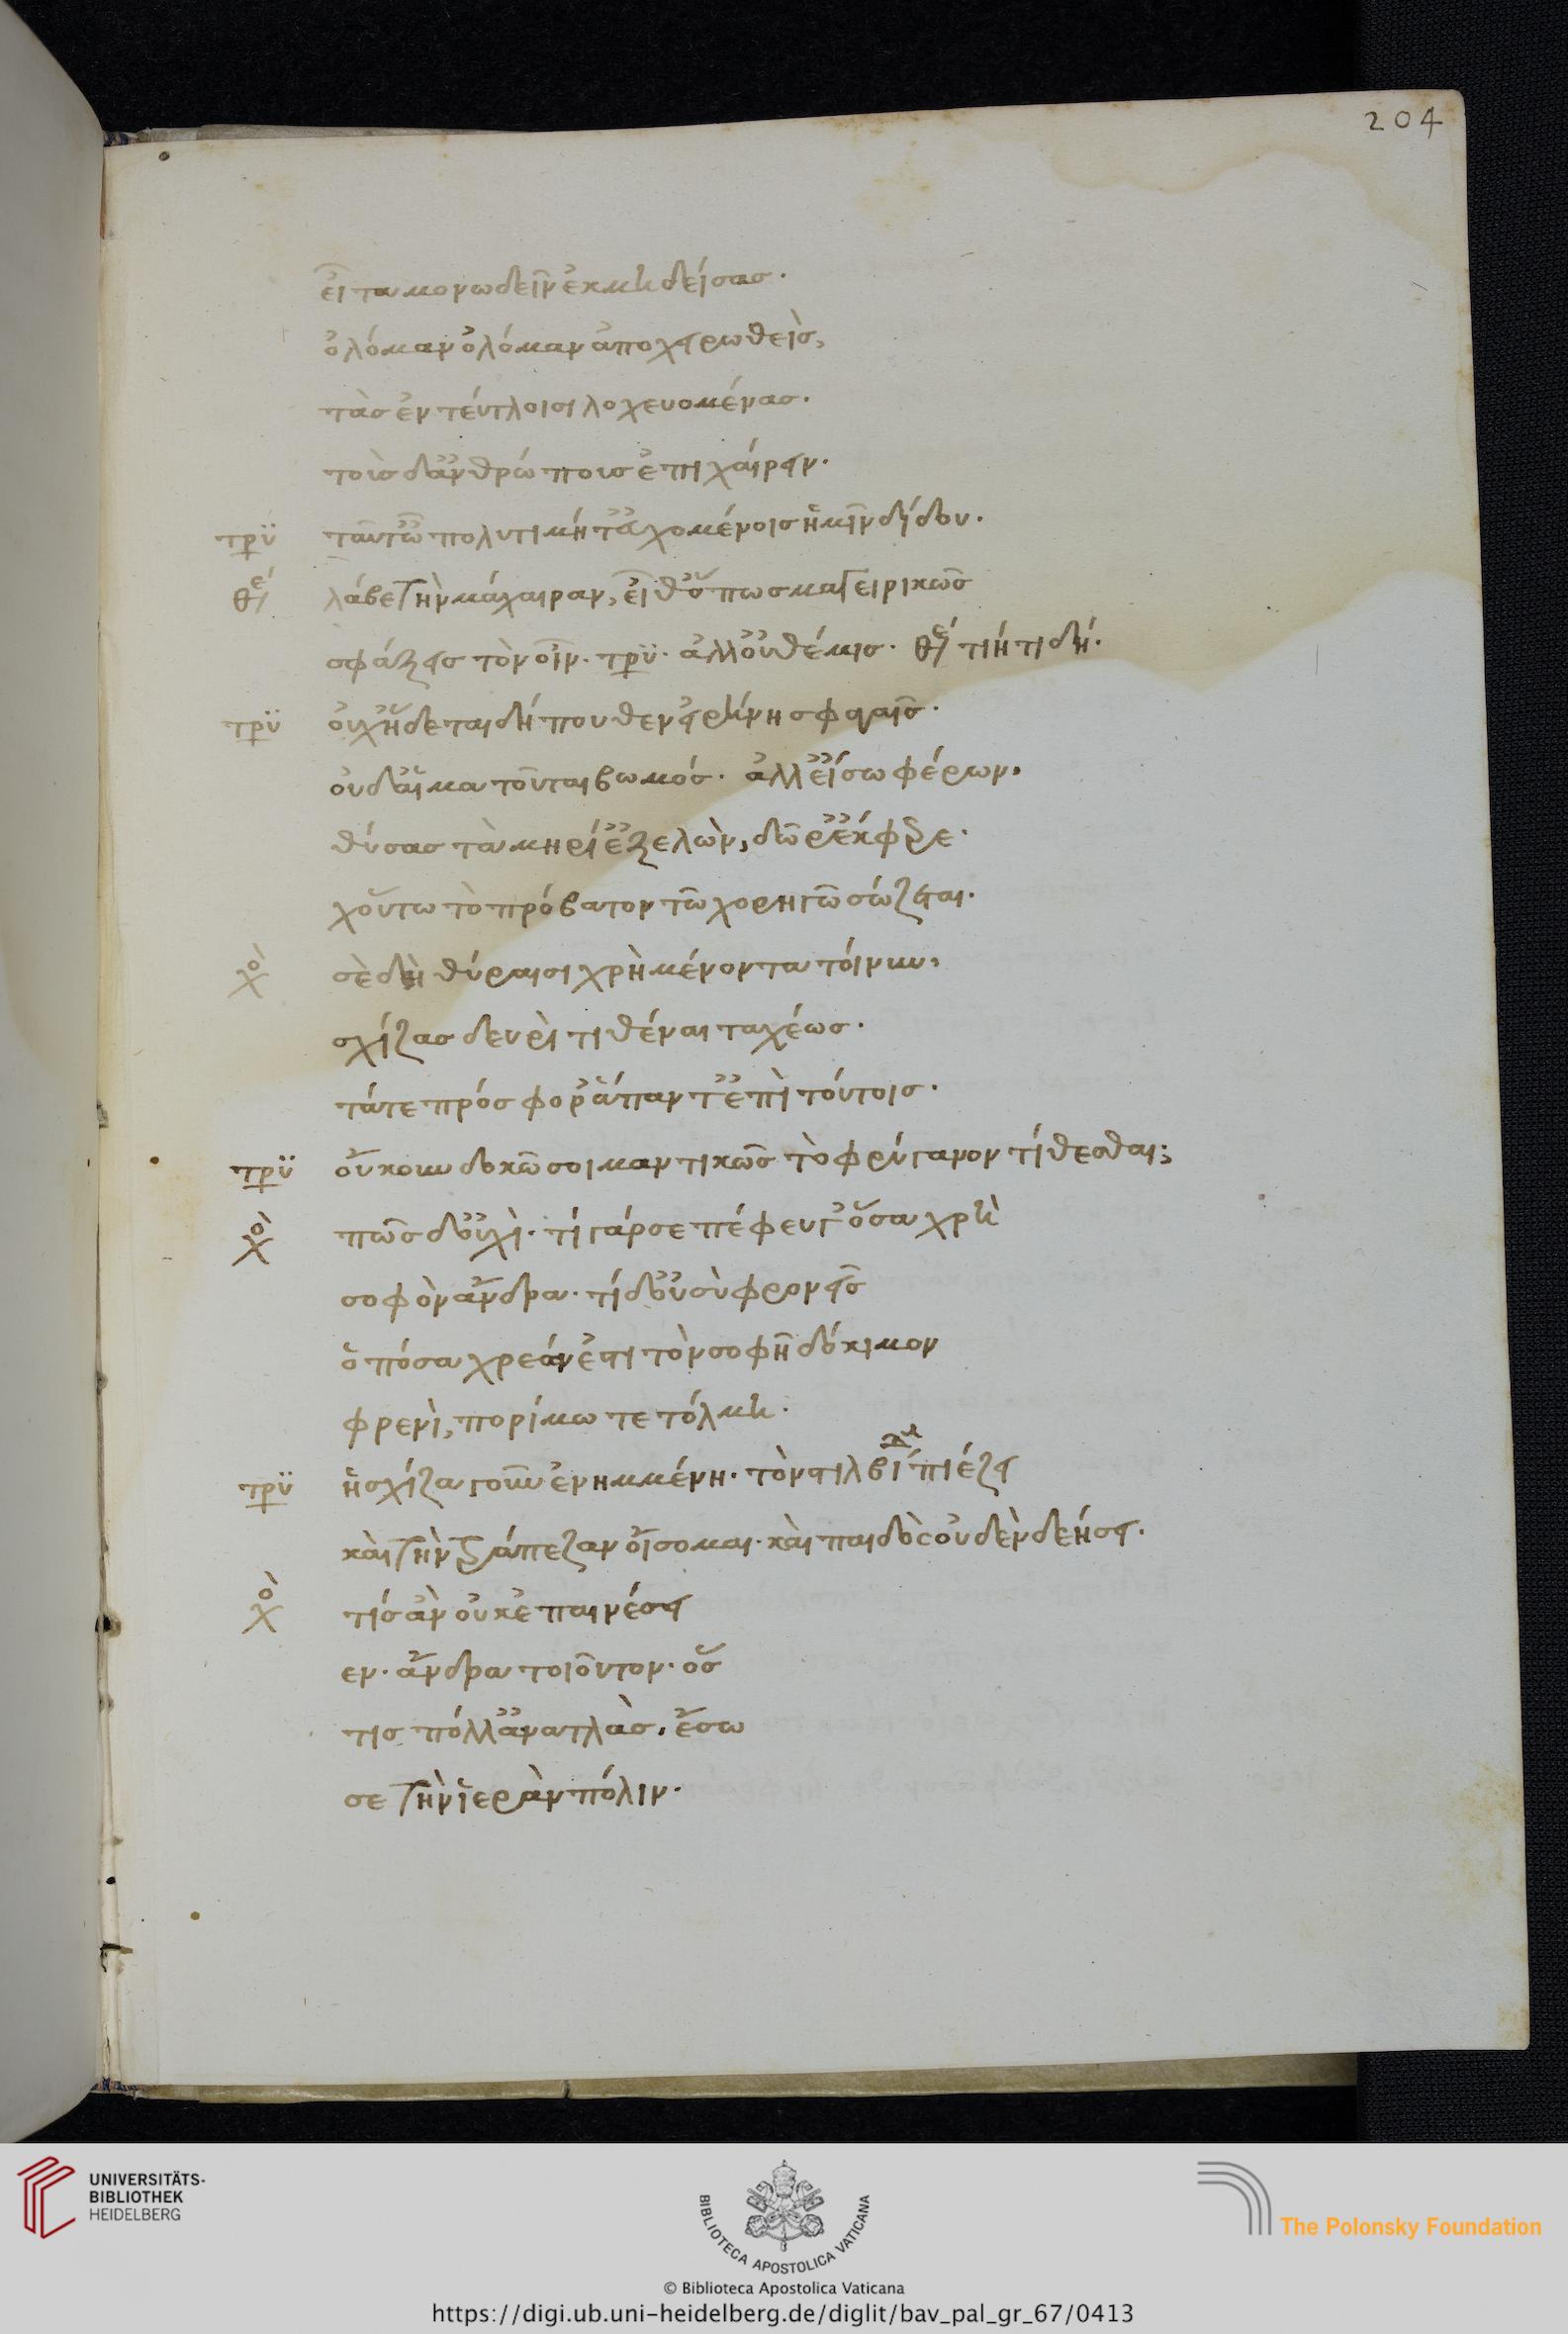 204
εἶτα μονωδεῖν ἐκ μηδείας.
ὀλόμαν ὀλόμαν ἀποχειρωθεὶς,
τὰς ἐν τέυτλοισι λοχευομένας.
τοὶς δ' ἀνθρώποις ἐπιχαίρειν.
τρυ ταῦτ' ὦ πολυτιμήτ' ἀχομένοις ἡμῖν δίδου.
θε λάβε τὴν μάχαιραν, εἶθ' ὅπως μαγειρικῶς
σφάξεις τὸν οἶν. τρυ. ἀλλ' οὐ θέμις. θε τιή τι δή.
τρυ οὐχ ἥδεται δήπουθεν εἰρήνη σφαγαῖς.
οὐδ' αἱματοῦται βωμός. ἀλλ' εἴσω φέρων,
θύσας τὰ μηρί' ἐξελὼν, δῶρ' ἔκφερε.
χ' οὕτω τὸ πρόβατον τῶ χορηγῶ σώζεται.
χο σὲ δὴ θύραισι χρὴ μένοντα τοίνυν,
σχίζας δευρὶ τιθέναι ταχέως.
τάτε πρόσφορ' ἅπαντ' ἐπὶ τούτοις.
τρυ οὔκουν δοκῶ σοι μαντικῶς τὸ φρύγανον τίθεσθαι;
χο πῶς δ' οὐχὶ. τί γάρ σε πέφευγ' ὅσα χρὴ
σοφὸν ἄνδρα. τί δ' οὐ σὺ φρονεῖς
ὁπόσα χρεάν ἐστι τὸν σοφῆ δόκιμον
φρενὶ, πορίμω τε τόλμη.
τρυ ἡ σχίζα γοῦν ἐνημμένη. τὸν στιλβί πιέζει
καὶ τὴν τράπεζαν οἴσομαι. καὶ παιδὸς οὐδὲν δεήσει.
χο τίς ἂν οὐκ ἐπαινέσει
εν. ἄνδρα τοιοῦτον. ὅσ
τις πόλλ' ἀνατλὰς, ἔσω
σε τὴν ἱερὰν πόλιν.
UNIVERSITÄTS-
BIBLIOTHEK
HEIDELBERG
BIBLIOTECA APOSTOLICA VATICANA
The Polonsky Foundation
© Biblioteca Apostolica Vaticana
https://digi.ub.uni-heidelberg.de/diglit/bav_pal_gr_67/0413